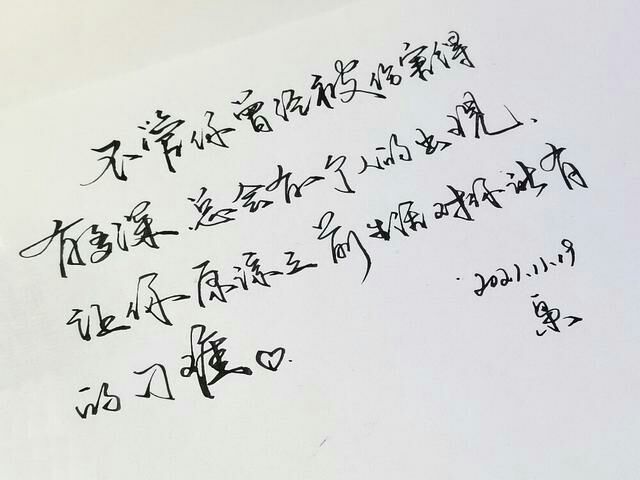 不管你曾经被伤害得
有多深 总会有一个人的出现、
让你原谅之前生活对你所有
的刁难♡.
2021.11.19